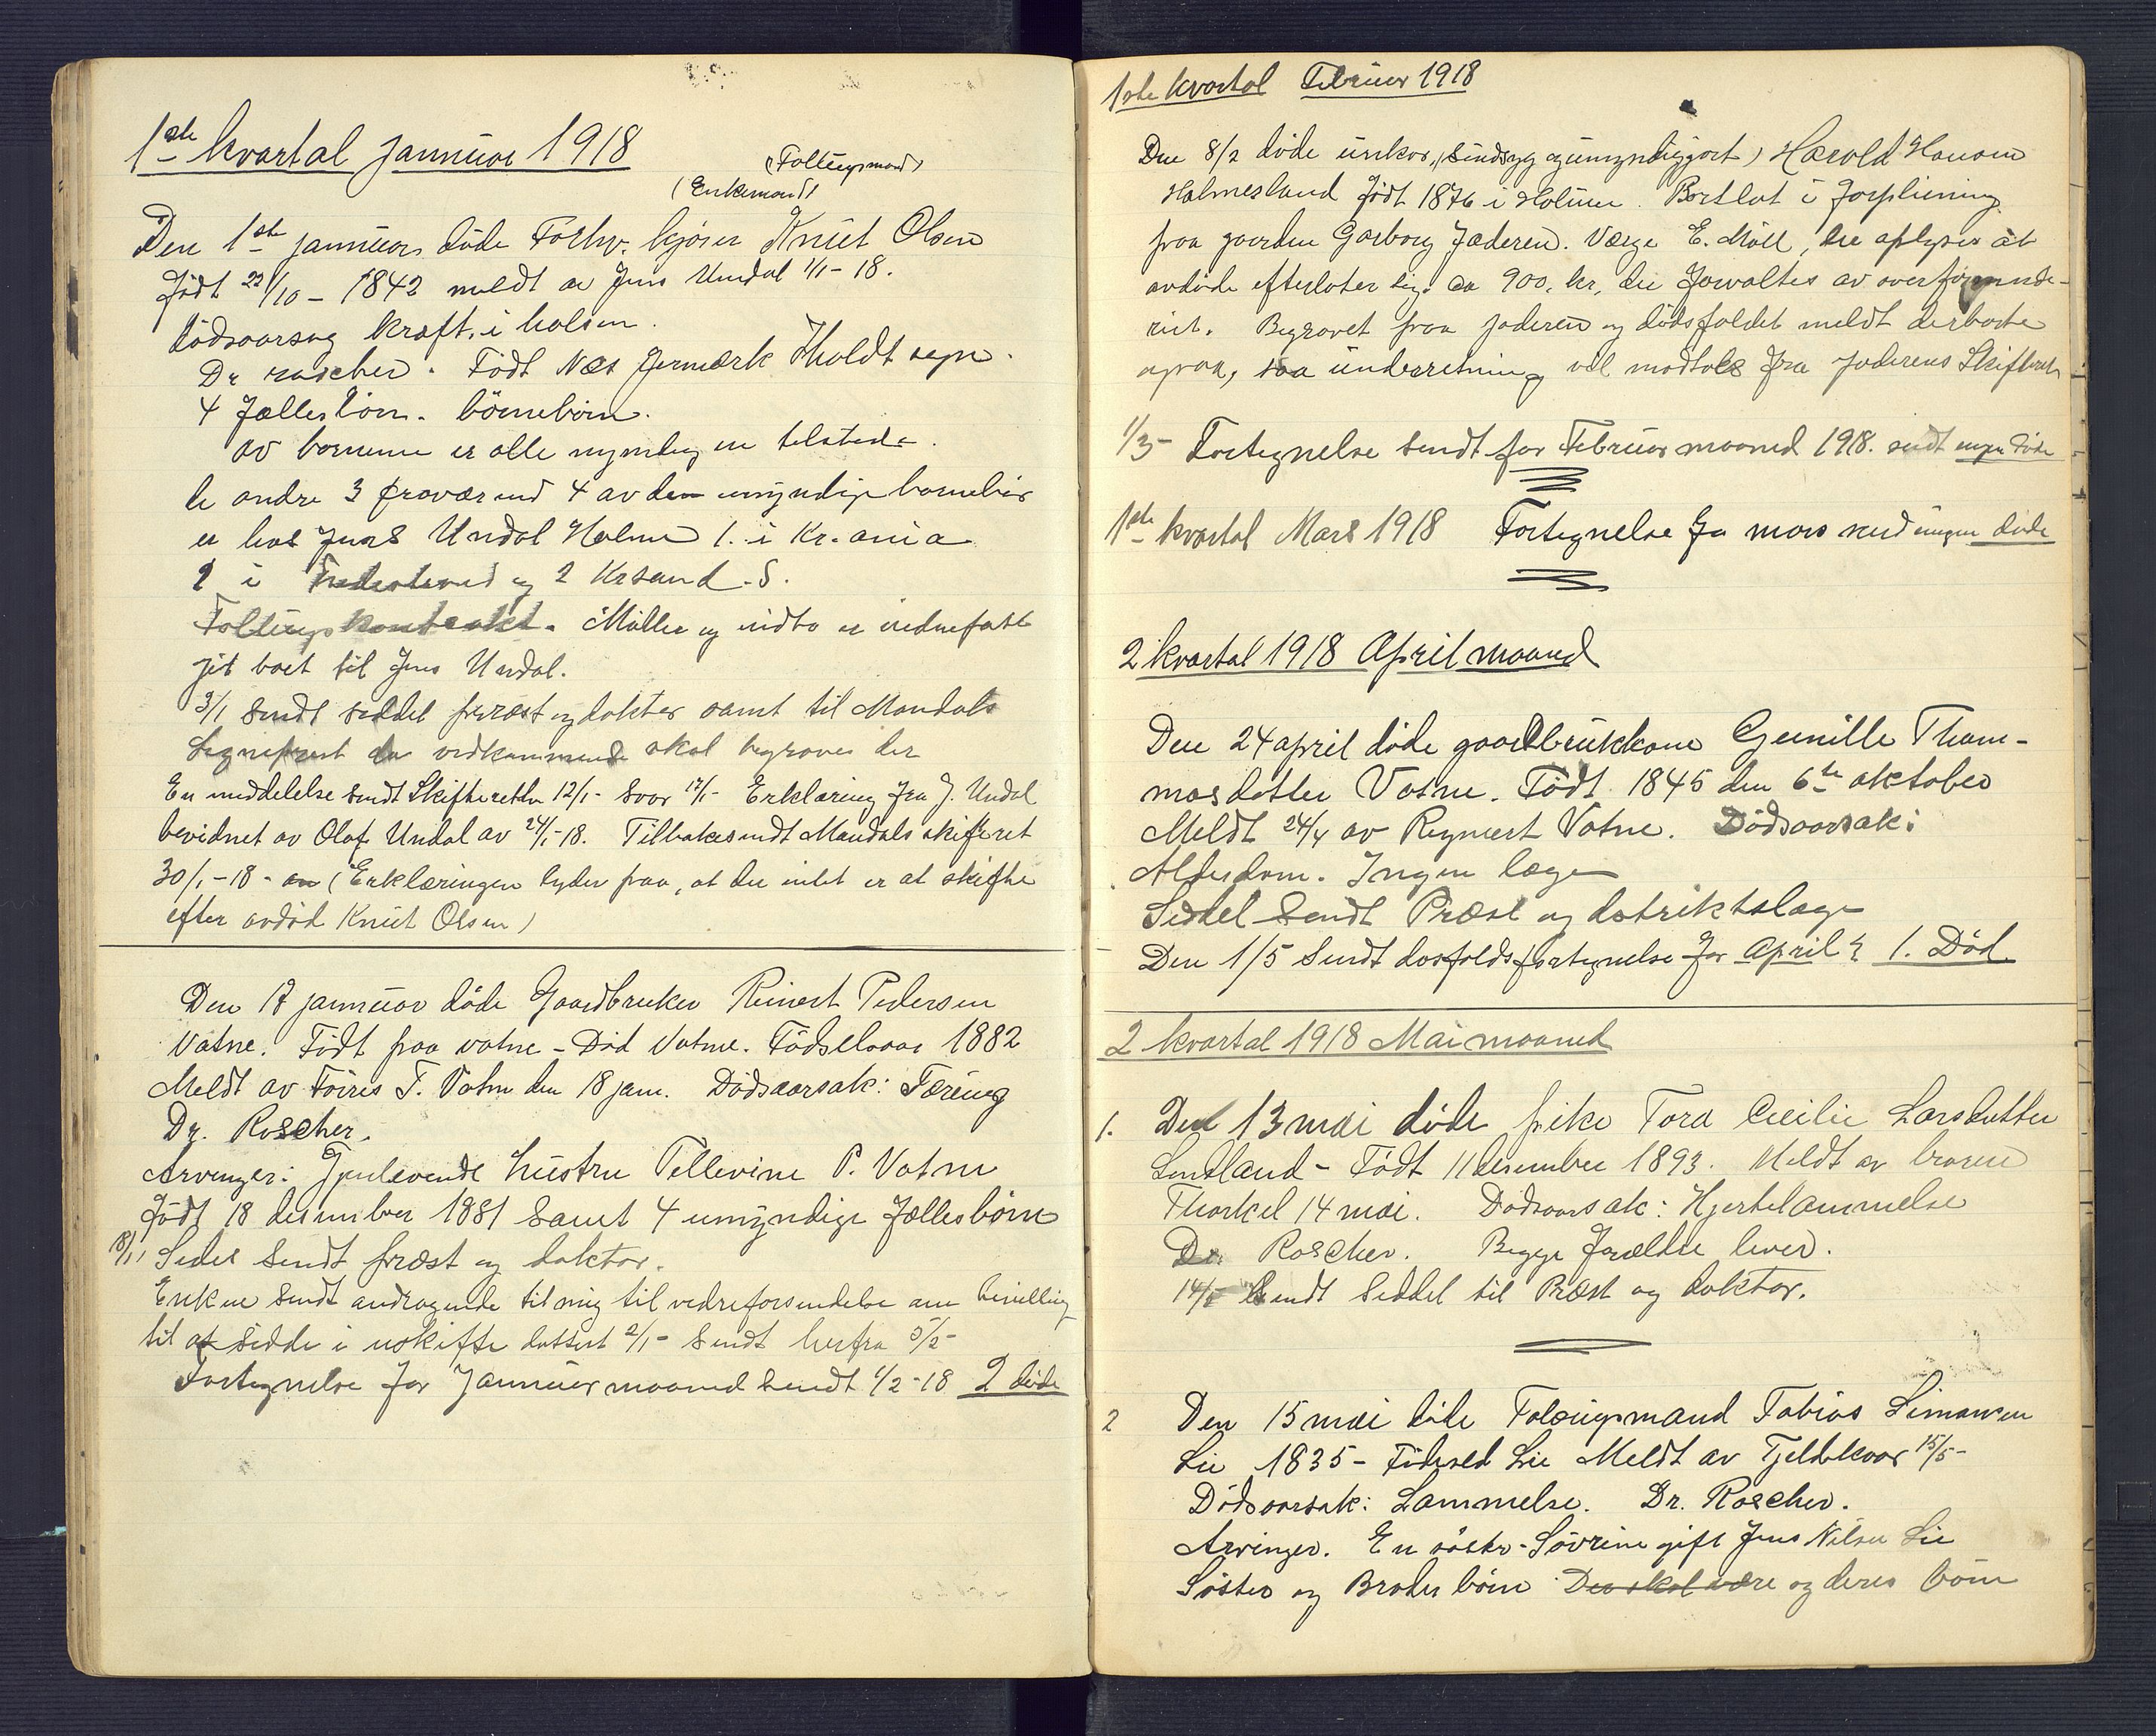 1ste kvartal Januar 1918
(Følingsmand)
(Enkemand)
Den 1ste januar døde Forhv. kjører Knut Olsen
født 22/10 - 1842 meldt av Jens Undal 1/1 - 18.
dødsaarsag kræft i halsen.
Dr. Roscher. Født Næs Jernværk Holdt sogn.
4 Fællesbørn. børnebørn.
av børnene er alle myndig en tilstede.
de andre 3 fraværend 4 av den umyndige børnebør
er hos Jens Undal Holme 1. i Kr.ania
2 i og 2 Krsand. S.
Føderaads kontrakt. Møller og indbo er
git boet til Jens Undal.
3/1 Sendt seddel præst og doktor samt til Mandals
Sogneprest da vedkommende skal begraves der
En meddelelse sendt Skifteretten 12/1 - Svar 17/1 - Erklæring fra J. Undal
bevidnet av Olaf Undal av 24/1-18. Tilbakesendt Mandals skifteret
30/1-18 - (Erklæringen lyder paa, at der intet er at skifte
efter avdød Knut Olsen)
Den 17 januar døde Gaardbruker Reinert Pedersen
Vatne. Født paa vatne - Død Vatne. Fødselsaar 1882
Meldt av T. Vatne den 18 jan. Dødsaarsak: Tæring
Dr. Roscher.
Arvinger: Gjenlevende hustru Tellevine P. Vatne
født 18 desember 1881 samt 4 umyndige fællesbørn
18/1 Sedel sendt præst og doktor.
Enken sendt andragende til mig til videreforsendelse om bevilling
til at sidde i uskifte dattert 2/1 - Sendt herfra 5/2 -
Fortegnelse for Januar maaned sendt 1/2-18 2 døde
1ste kvartal Februar 1918
Den 8/2 døde unkar, (sindsyg og umyndiggjort) Harold Hansen
Holmesland født 1876 i Holum. Bortsat i forpleining
paa gaarden Garborg Jæderen. Værge E. Møll, der oplyser at
avdøde efterlater sig ca 900. kr, der forvaltes av overformynde-
riet. Begravet paa jæderen og dødsfaldet meldt derborte
ogsaa, saa underretning vil modtaes fra Jæderens Skifteret
1/3 - Fortegnelse sendt for Februar maaned 1918. sendt ingen døde
1ste kvartal Mars 1918 Fortegnelse for mars send ingen døde
2 kvartal 1918 April maaned
Den 24 april døde gaardbrukkone Gunille Thom-
masdatter Vatne. Født 1845 den 6te oktober
Meldt 24/4 av Reynert Vatne. Dødsaarsak:
Alderdom. Ingen læge
Seddel Sendt Præst og distriktslæge
Den 1/5 Sendt dosfaldsfortegnelse for April 1. Død
2 kvartal 1918 Mai maaned
1. Den 13 mai døde pike Tora Cecilie Larsdatter
Lindland - Født 11 desember 1893. Meldt av broren
Thorkel 14 mai. Dødsaarsak: Hjertelammelse
Dr. Roscher. Begge forældre lever.
14/5 Sendt Seddel til Præst og doktor.
2 Den 15 mai døde Følingsmand Tobias Simonsen
Lie 1835 - Fødested Lie Meldt av Tjeldskaar 15/5 -
Dødsaarsak: Lammelse. Dr. Roscher.
Arvinger. En søster - Sørine gift Jens Nilsen Lie
Søster og Broder børn Der skal være og deres børn